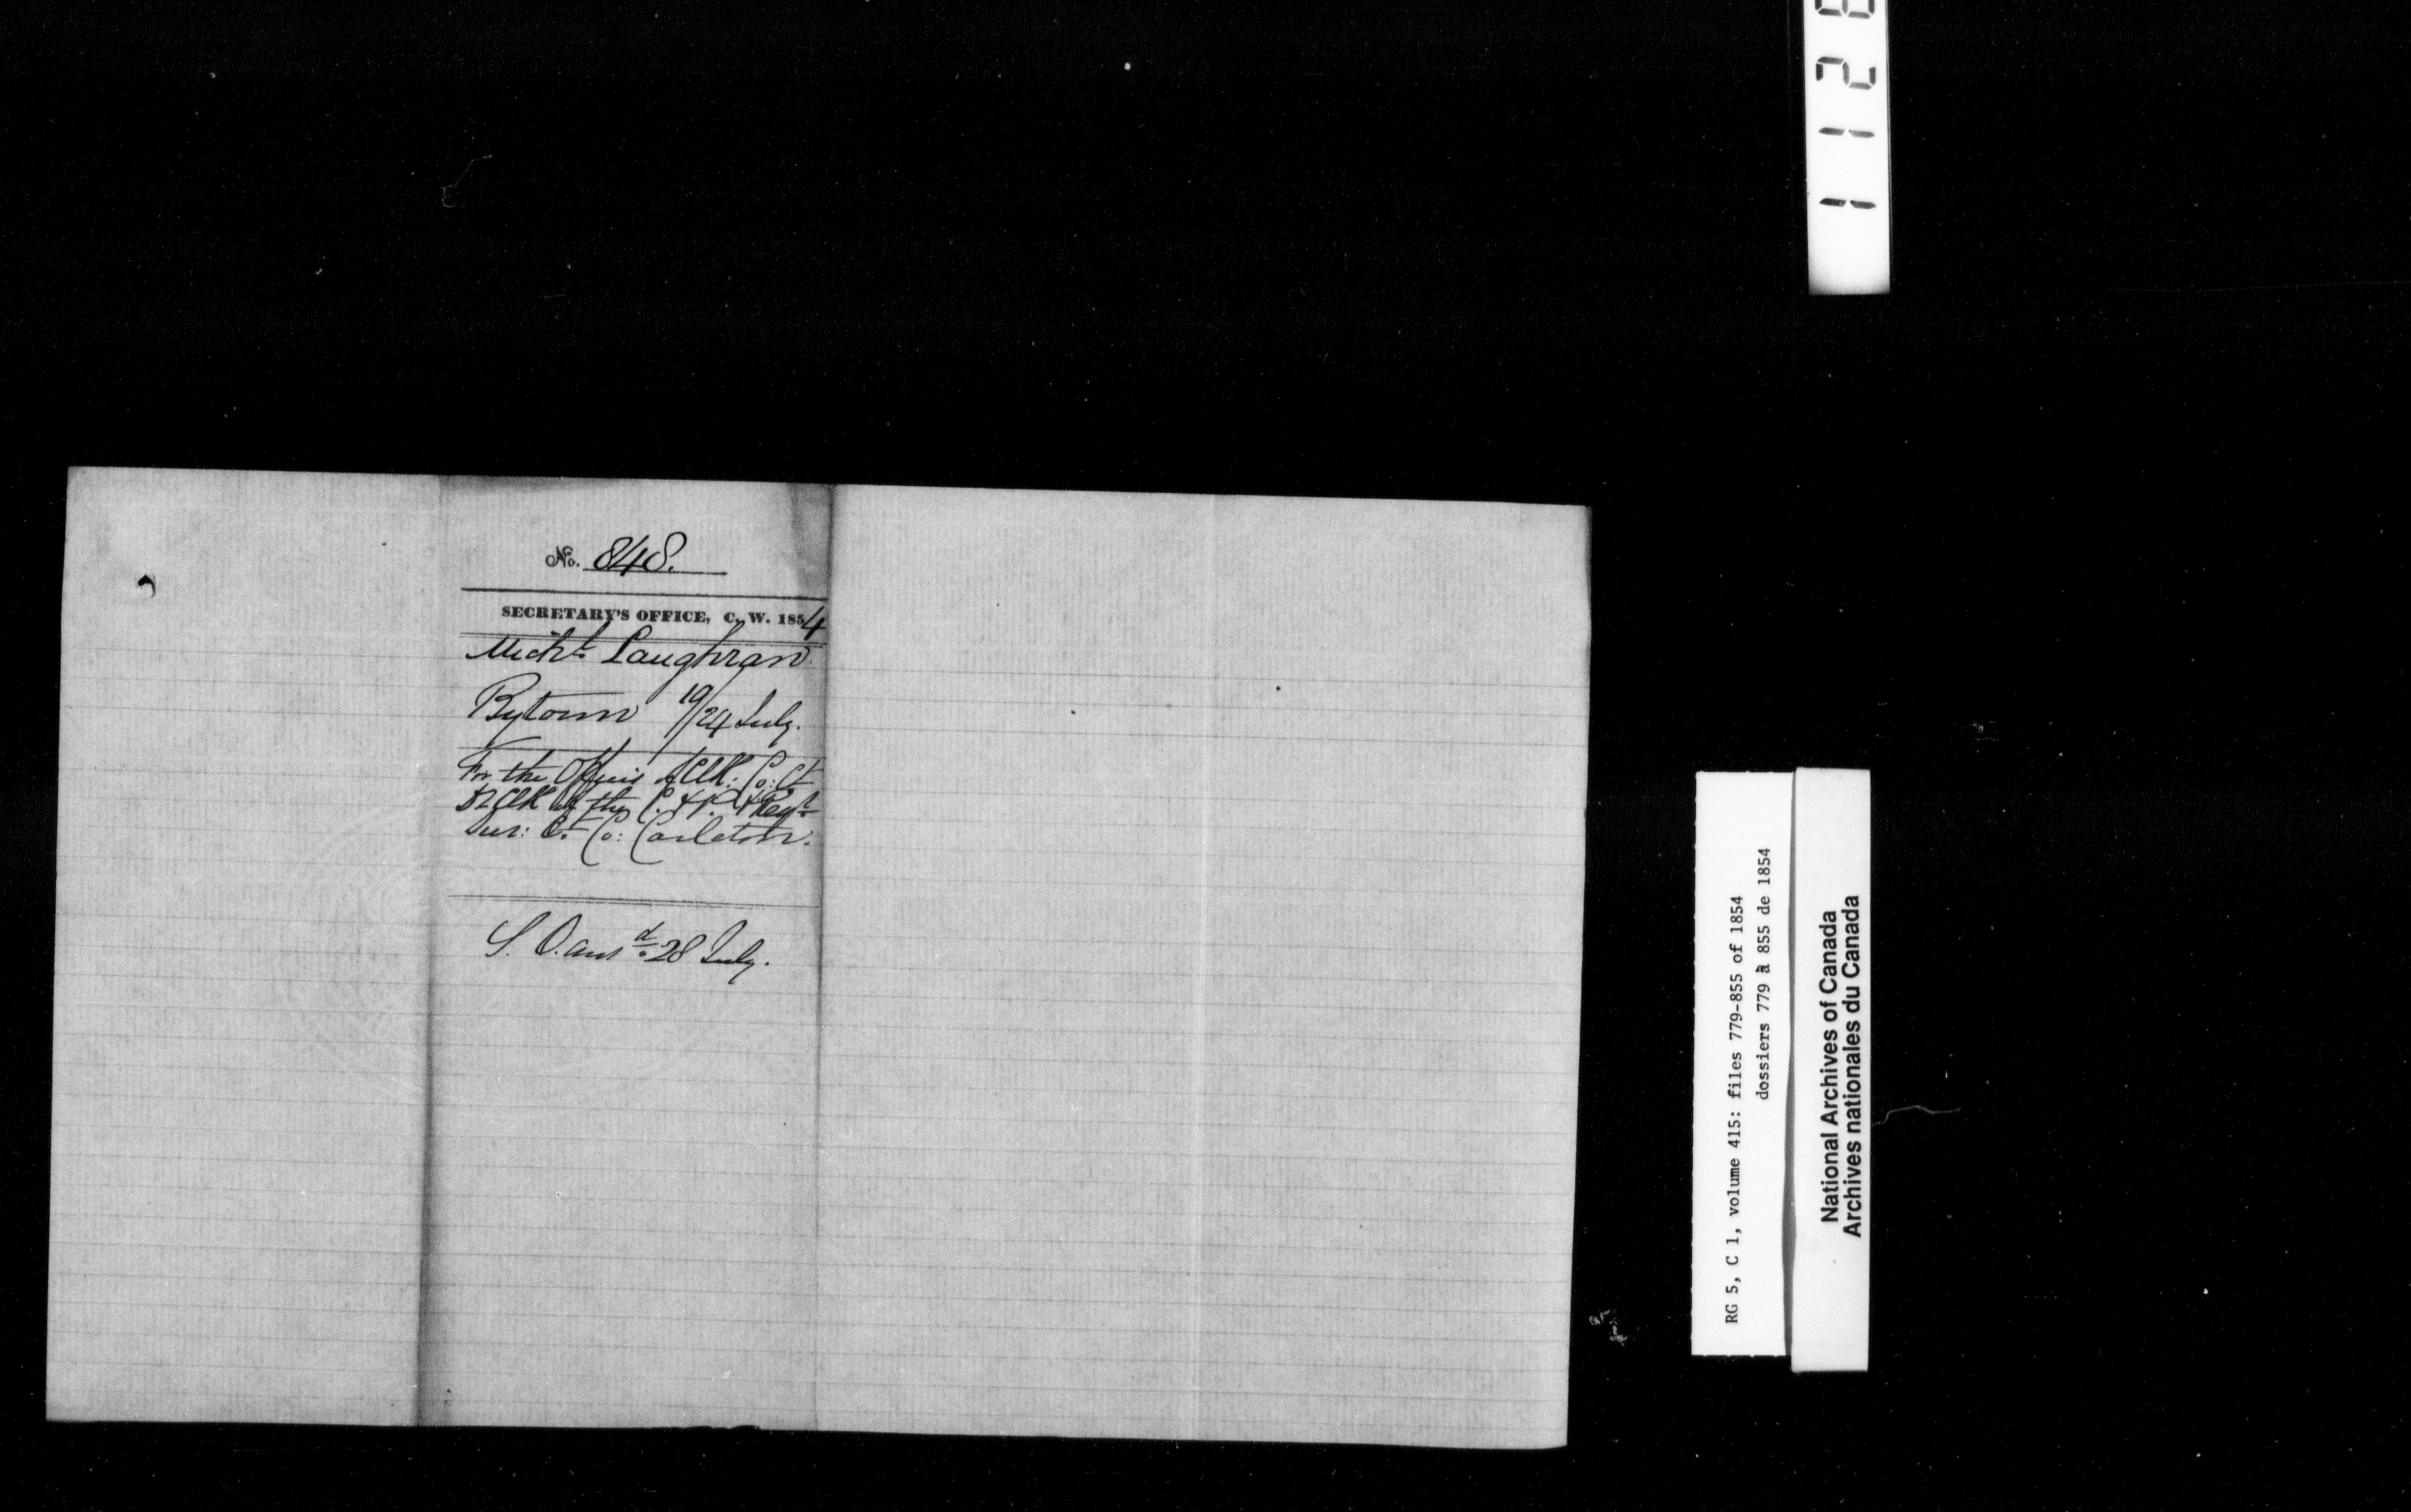 No. 848.
SECRETARY'S OFFICE, C. W. 1854
Michl Laughran
Bytown 19/24 July.
For the Offices of Clk. Co: Ct
Clk of the C. & P. & Regr
Sur: Ct Co: Carleton.
S. O. ansd 28 July.
RG 5, C 1, volume 415: files 779-855 of 1854
dossiers 779 à 855 de 1854
National Archives of Canada
Archives nationales du Canada
1 1 2 8